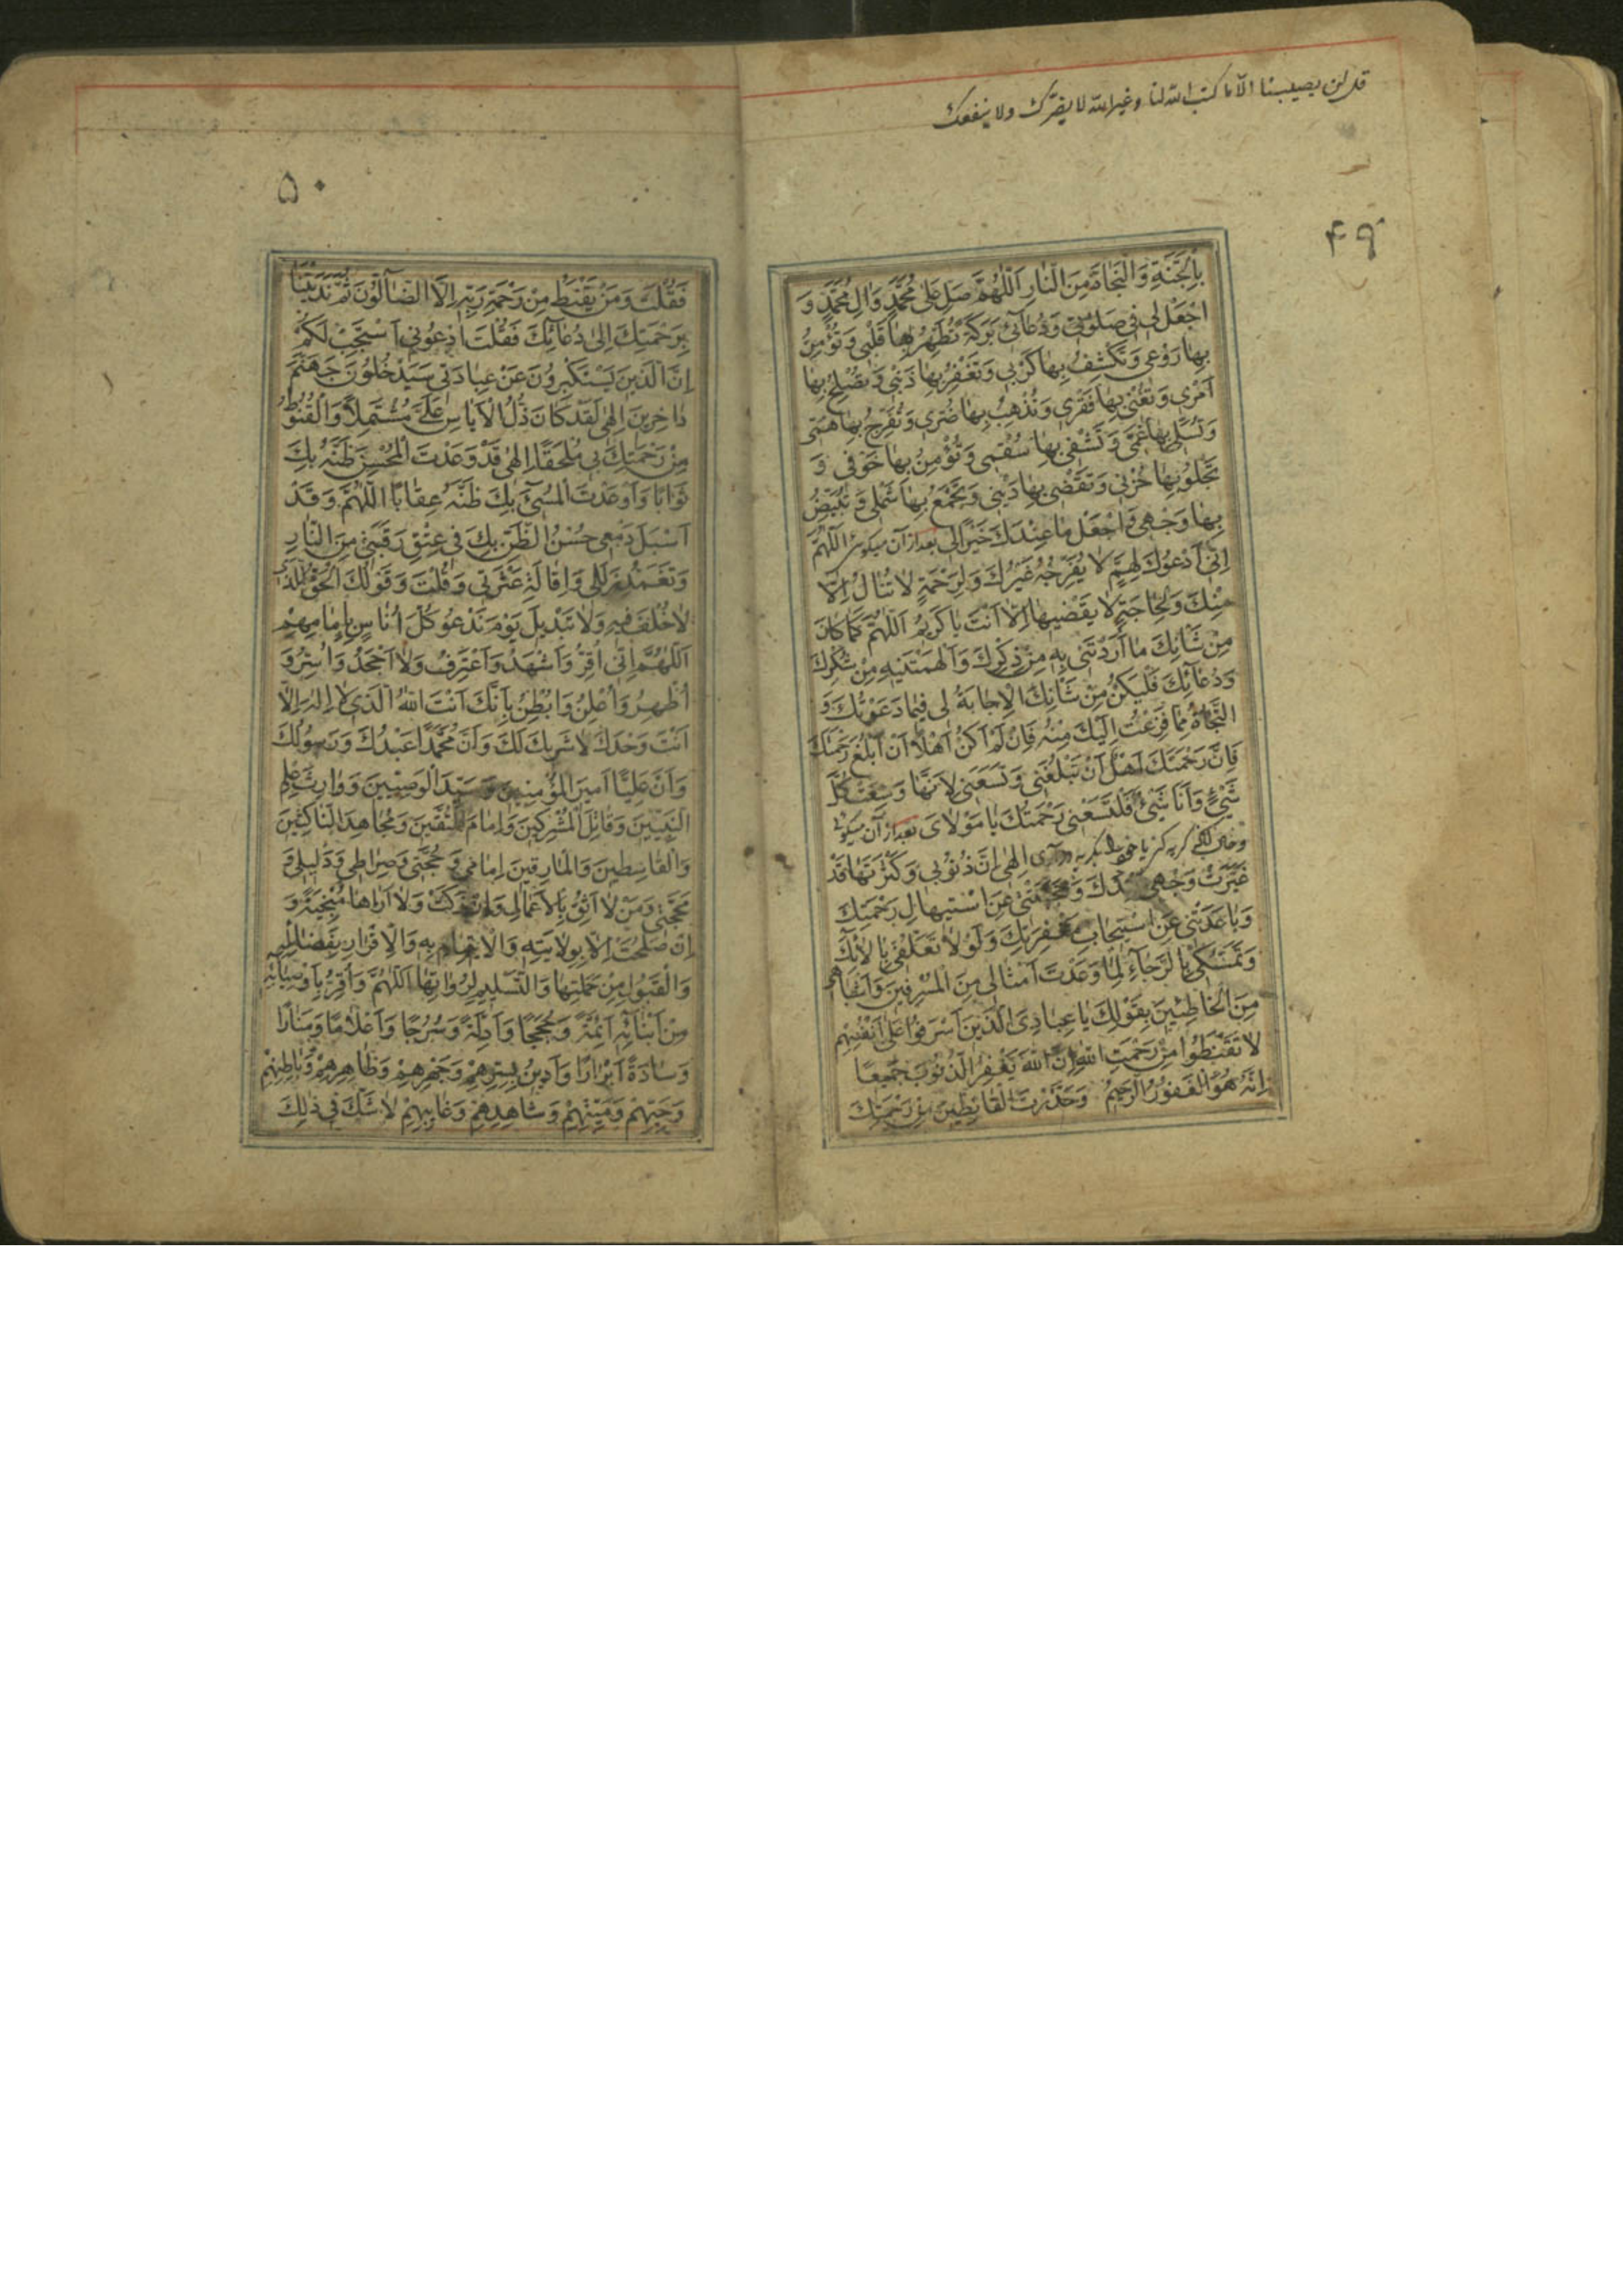 قل لن یصیبنا الّا ما کتب الله لنا و غیر الله لا یضرّک ولا ینفعک
۴۹
بِالْجَنَّةِ وَالنَّجَاةِ مِنَ النَّارِ اَللّٰهُمَّ صَلِّ عَلٰى مُحَمَّدٍ وَاٰلِ مُحَمَّدٍ وَ
اجْعَلْ لی فی صَلوٰتی وَدُعَآئی بَرَکَةً تُطَهِّرُ بِهَا قَلْبی وَتُؤْمِنُ
بِهَا رَوْعی وَتَکْشِفُ بِهَا کَرْبی وَتَغْفِرُ بِهَا ذَنْبی وَتُصْلِحُ بِهَا
اَمْری وَتُغْنی بِهَا فَقْری وَتُذْهِبُ بِهَا ضُرّی وَتُفَرِّجُ بِهَا هَمّی
وَتُسَلّی بِهَا غَمّی وَتَشْفی بِهَا سُقْمی وَتُؤْمِنُ بِهَا خَوْفی وَ
تَجْلُو بِهَا حُزْنی وَتَقْضی بِهَا دَیْنی وَتَجْمَعُ بِهَا شَمْلی وَتُبَیِّضُ
بِهَا وَجْهی وَاجْعَلْ مَا عِنْدَکَ خَیْرًا لی بعد از آن میکوئی اَللّٰهُمَّ
اِنّی اَدْعُوکَ لِهَمٍّ لَا یُفَرِّجُهُ غَیْرُکَ وَلِرَحْمَةٍ لَا تُنَالُ اِلَّا
مِنْکَ وَلِحَاجَةٍ لَا یَقْضیهَا اِلَّا اَنْتَ یَا کَریمُ اَللّٰهُمَّ کَمَا کَانَ
مِنْ شَانِکَ مَا اَرَدْتَنی بِهِ مِنْ ذِکْرِکَ وَاَلْهَمْتَنیهِ مِنْ شُکْرِکَ
وَدُعَآئِکَ فَلْیَکُنْ مِنْ شَانِکَ الْاِجَابَةُ لی فیمَا دَعَوْتُکَ وَ
النَّجَاةُ مِمَّا فَزِعْتُ اِلَیْکَ مِنْهُ فَاِنْ لَمْ اَکُنْ اَهْلًا اَنْ اَبْلُغَ رَحْمَتَکَ
فَاِنَّ رَحْمَتَکَ اَهْلٌ اَنْ تَبْلُغَنی وَتَسَعَنی لِاَنَّهَا وَسِعَتْ کُلَّ
شَیْءٍ وَاَنَا شَیْءٌ فَلْتَسَعْنی رَحْمَتُکَ یَا مَوْلَایَ بعد از آن میکوئی
اِلٰهی اِنَّ ذُنُوبی وَکَثْرَتَهَا قَدْ
غَیَّرَتْ وَجْهی عِنْدَکَ وَحَجَبَتْنی عَنِ اسْتیهَالِ رَحْمَتِکَ
وَبَاعَدَتْنی عَنِ اسْتیجَابِ مَغْفِرَتِکَ وَلَوْلَا تَعَلُّقی بِاٰلَآئِکَ
وَتَمَسُّکی بِالرَّجَآءِ لِمَا وَعَدْتَ اَمْثَالی مِنَ الْمُسْرِفینَ وَاَشْبَاهی
مِنَ الْخَاطِئینَ بِقَوْلِکَ یَا عِبَادِیَ الَّذینَ اَسْرَفُوا عَلٰى اَنْفُسِهِمْ
لَا تَقْنَطُوا مِنْ رَحْمَتِ اللهِ اِنَّ اللهَ یَغْفِرُ الذُّنُوبَ جَمیعًا
اِنَّهُ هُوَ الْغَفُورُ الرَّحیمُ وَحَذَّرْتَ الْقَانِطینَ مِنْ رَحْمَتِکَ
۵۰
فَقُلْتَ وَمَنْ یَقْنَطُ مِنْ رَحْمَةِ رَبِّهِ اِلَّا الضَّآلُّونَ ثُمَّ نَدَبْتَنَا
بِرَحْمَتِکَ اِلٰى دُعَآئِکَ فَقُلْتَ ادْعُونی اَسْتَجِبْ لَکُمْ
اِنَّ الَّذینَ یَسْتَکْبِرُونَ عَنْ عِبَادَتی سَیَدْخُلُونَ جَهَنَّمَ
دَاخِرینَ اِلٰهی لَقَدْ کَانَ ذُلُّ الْاَیَاسِ عَلَیَّ مُشْتَمِلًا وَالْقُنُوطُ
مِنْ رَحْمَتِکَ بی مُلْتَحِفًا اِلٰهی قَدْ وَعَدْتَ الْمُحْسِنَ ظَنَّهُ بِکَ
ثَوَابًا وَاَوْعَدْتَ الْمُسیءَ بِکَ ظَنَّهُ عِقَابًا اَللّٰهُمَّ وَقَدْ
اَسْبَلَ دَمْعی حُسْنُ الظَّنِّ بِکَ فی عِتْقِ رَقَبَتی مِنَ النَّارِ
وَتَغَمُّدِ زَلَلی وَاِقَالَةِ عَثْرَتی وَقُلْتَ وَقَوْلُکَ الْحَقُّ الَّذی
لَا خُلْفَ فیهِ وَلَا تَبْدیلَ یَوْمَ نَدْعُو کُلَّ اُنَاسٍ بِاِمَامِهِمْ
اَللّٰهُمَّ اِنّی اُقِرُّ وَاَشْهَدُ وَاَعْتَرِفُ وَلَا اَجْحَدُ وَاُسِرُّ وَ
اُظْهِرُ وَاُعْلِنُ وَاُبْطِنُ بِاَنَّکَ اَنْتَ اللهُ الَّذی لَا اِلٰهَ اِلَّا
اَنْتَ وَحْدَکَ لَا شَریکَ لَکَ وَاَنَّ مُحَمَّدًا عَبْدُکَ وَرَسُولُکَ
وَاَنَّ عَلِیًّا اَمیرَ الْمُؤْمِنینَ وَسَیِّدَ الْوَصِیّینَ وَوَارِثَ عِلْمِ
النَّبِیّینَ وَقَاتِلَ الْمُشْرِکینَ وَاِمَامَ الْمُتَّقینَ وَمُجَاهِدَ النَّاکِثینَ
وَالْقَاسِطینَ وَالْمَارِقینَ اِمَامی وَحُجَّتی وَصِرَاطی وَدَلیلی وَ
مَحَجَّتی وَمَنْ لَا اَثِقُ بِالْاَعْمَالِ وَاِنْ زَکَتْ وَلَا اَرَاهَا مُنْجِیَةً وَ
اِنْ صَلُحَتْ اِلَّا بِوِلَایَتِهِ وَالْاِیتِمَامِ بِهِ وَالْاِقْرَارِ بِفَضَائِلِهِ
وَالْقَبُولِ مِنْ حَمَلَتِهَا وَالتَّسْلیمِ لِرُوَاتِهَا اَللّٰهُمَّ وَاُقِرُّ بِاَوْصِیَآئِهِ
مِنْ اَبْنَآئِهِ اَئِمَّةً وَحُجَجًا وَاَدِلَّةً وَسُرُجًا وَاَعْلَامًا وَمَنَارًا
وَسَادَةً اَبْرَارًا وَاَدینُ بِسِرِّهِمْ وَجَهْرِهِمْ وَظَاهِرِهِمْ وَبَاطِنِهِمْ
وَحَیِّهِمْ وَمَیِّتِهِمْ وَشَاهِدِهِمْ وَغَایِبِهِمْ لَا شَکَّ فی ذٰلِکَ